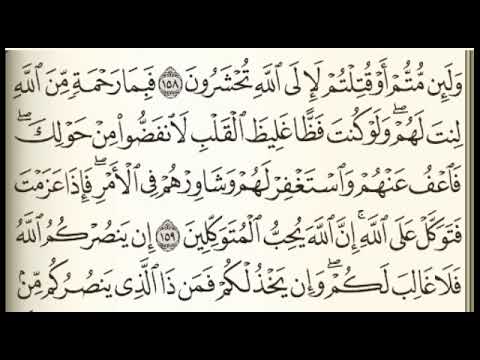 وَلَئِن مُّتُّمْ أَوْ قُتِلْتُمْ لَإِلَى ٱللَّهِ تُحْشَرُونَ ١٥٨ فَبِمَا رَحْمَةٍ مِّنَ ٱللَّهِ
لِنتَ لَهُمْ ۖ وَلَوْ كُنتَ فَظًّا غَلِيظَ ٱلْقَلْبِ لَٱنفَضُّوا۟ مِنْ حَوْلِكَ ۖ
فَٱعْفُ عَنْهُمْ وَٱسْتَغْفِرْ لَهُمْ وَشَاوِرْهُمْ فِى ٱلْأَمْرِ ۖ فَإِذَا عَزَمْتَ
فَتَوَكَّلْ عَلَى ٱللَّهِ ۚ إِنَّ ٱللَّهَ يُحِبُّ ٱلْمُتَوَكِّلِينَ ١٥٩ إِن يَنصُرْكُمُ ٱللَّهُ
فَلَا غَالِبَ لَكُمْ ۖ وَإِن يَخْذُلْكُمْ فَمَن ذَا ٱلَّذِى يَنصُرُكُم مِّنۢ